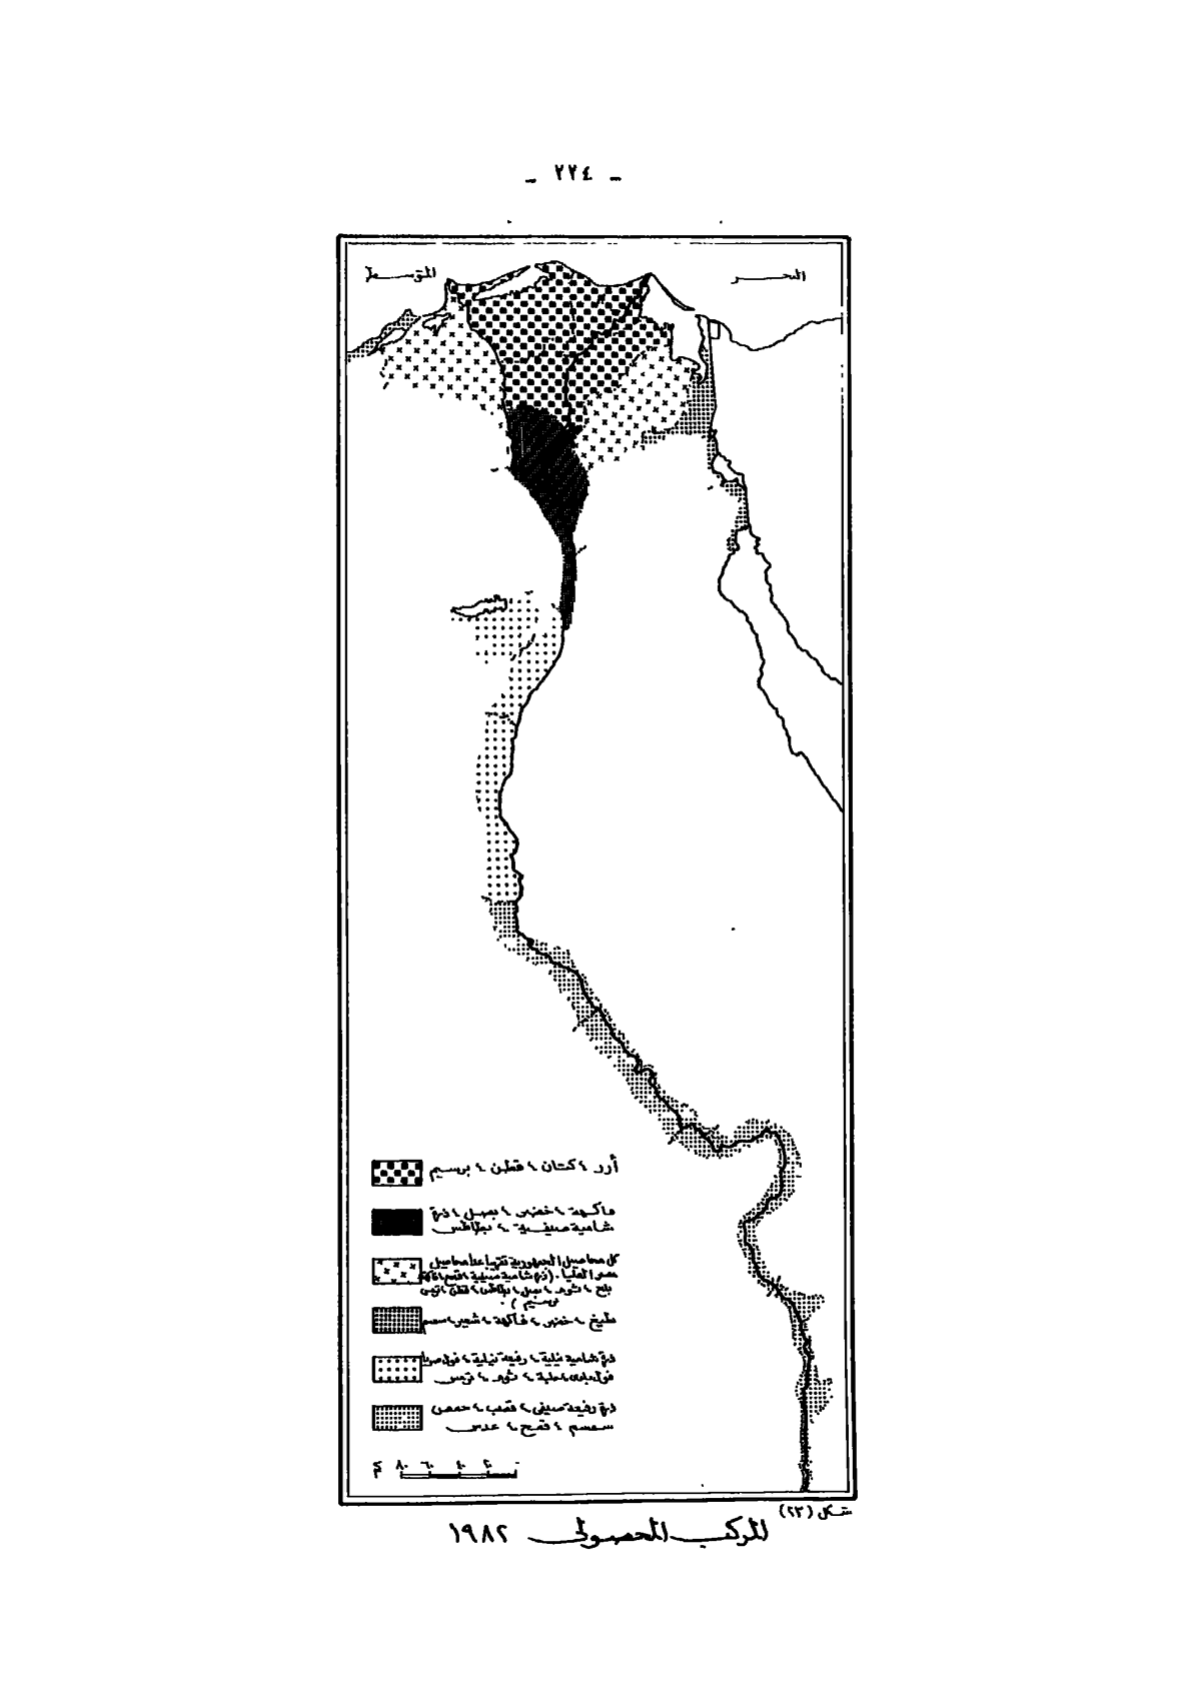 - ٢٢٤ -
البحر
المتوسط
أرز ، كتان ، قطن ، برسيم
فاكهة ، خضر ، بصل ، ذرة
شامية صيفية ، بطاطس
كل محاصيل الجمهورية تقريبا عدا محاصيل
مصر العليا . (ذرة شامية صيفية ، قمح ، فاكهة
بلح ، ثوم ، بصل ، بطاطس ، قطن ، ترمس
برسيم ) .
بطيخ ، خضر ، فاكهة ، شعير ، سمسم
ذرة شامية نيلية ، رفيعة نيلية ، فول صويا
فول بلدى ، حلبة ، ثوم ، ترمس
ذرة رفيعة صيفى ، قصب ، حمص
سمسم ، قمح ، عدس
٠ ٢٠ ٤٠ ٦٠ ٨٠ كم
شكل (٢٣)
المركب المحصولى ١٩٨٢